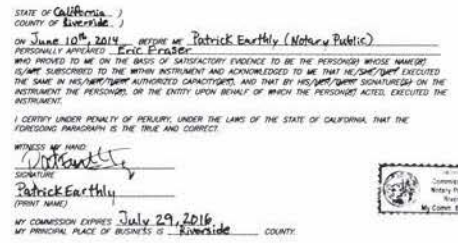 STATE OF California )
COUNTY OF Riverside )
ON June 10th, 2014 BEFORE ME Patrick Earthly (Notary Public)
PERSONALLY APPEARED Eric Fraser
WHO PROVED TO ME ON THE BASIS OF SATISFACTORY EVIDENCE TO BE THE PERSON(S) WHOSE NAME(S)
IS/ARE SUBSCRIBED TO THE WITHIN INSTRUMENT AND ACKNOWLEDGED TO ME THAT HE/SHE/THEY EXECUTED
THE SAME IN HIS/HER/THEIR AUTHORIZED CAPACITY(IES), AND THAT BY HIS/HER/THEIR SIGNATURE(S) ON THE
INSTRUMENT THE PERSON(S), OR THE ENTITY UPON BEHALF OF WHICH THE PERSON(S) ACTED, EXECUTED THE
INSTRUMENT.
I CERTIFY UNDER PENALTY OF PERJURY, UNDER THE LAWS OF THE STATE OF CALIFORNIA, THAT THE
FOREGOING PARAGRAPH IS THE TRUE AND CORRECT.
WITNESS MY HAND
SIGNATURE
Patrick Earthly
(PRINT NAME)
MY COMMISSION EXPIRES July 29, 2016
MY PRINCIPAL PLACE OF BUSINESS IS Riverside COUNTY.
Commiss
Notary P
River
My Comm. E